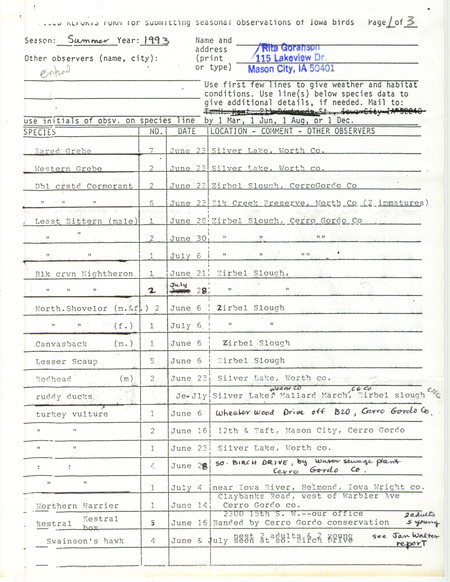 FIELD REPORTS FORM for submitting seasonal observations of Iowa birds Page 1 of 3
Season: Summer Year: 1993 Name and
address
(print
or type)
Rita Goranson
115 Lakeview Dr.
Mason City, IA 50401
Other observers (name, city):
entered
Use first few lines to give weather and habitat
conditions. Use line(s) below species data to
give additional details, if needed. Mail to:
use initials of obsv. on species line by 1 Mar, 1 Jun, 1 Aug, or 1 Dec.
SPECIES NO. DATE LOCATION - COMMENT - OTHER OBSERVERS
Eared Grebe 7 June 23 Silver Lake, Worth Co.
Western Grebe 2 June 23 Silver Lake, Worth Co.
Dbl crstd Cormorant 2 June 22 Zirbel Slough, CerroGordo Co
" " " 6 June 23 Elk Creek Preserve, Worth Co (2 immatures)
Least Bittern (male) 1 June 28 Zirbel Slough, Cerro Gordo Co
" " 2 June 30 " " ""
" " 1 July 6 " " ""
Blk crvn Nightheron 1 June 21 Zirbel Slough,
" " " 2 July 28 " "
North.Shovelor (m.&f.) 2 June 6 Zirbel Slough
" " (f.) 1 July 6 " "
Canvasback (m.) 1 June 6 Zirbel Slough
Lesser Scaup 5 June 6 Zirbel Slough
Redhead (m) 2 June 23 Silver Lake, Worth co.
ruddy ducks Je-Jly Silver Lake, Mallard March, Zirbel slough
turkey vulture 1 June 6 Wheeler Wood Drive off B20, Cerro Gordo Co.
" " 2 June 16 12th & Taft, Mason City, Cerro Gordo
" " 1 June 23 Silver Lake, Worth co.
" " 4 June 28 SO. BIRCH DRIVE, by Water sewage plant
Cerro Gordo Co.
" " 1 July 4 near Iowa River, Belmond, Iowa Wright co.
Northern Harrier 1 June 14 Claybanks Road, west of Warbler Ave
Cerro Gordo co.
kestral Kestral box 5 June 16 2300 15th S. W.--our office
Banded by Cerro Gordo conservation 2 adults
5 young
Swainson's hawk 4 June & July nest 2 adults & 2 young
at So. Birch Dring see Jan Walter
report